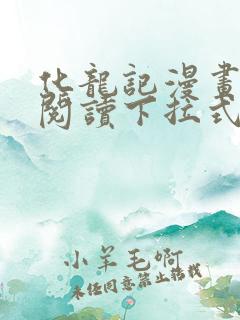 化龍記漫畫
閱讀下拉式
小羊毛啊
未經同意禁止轉載